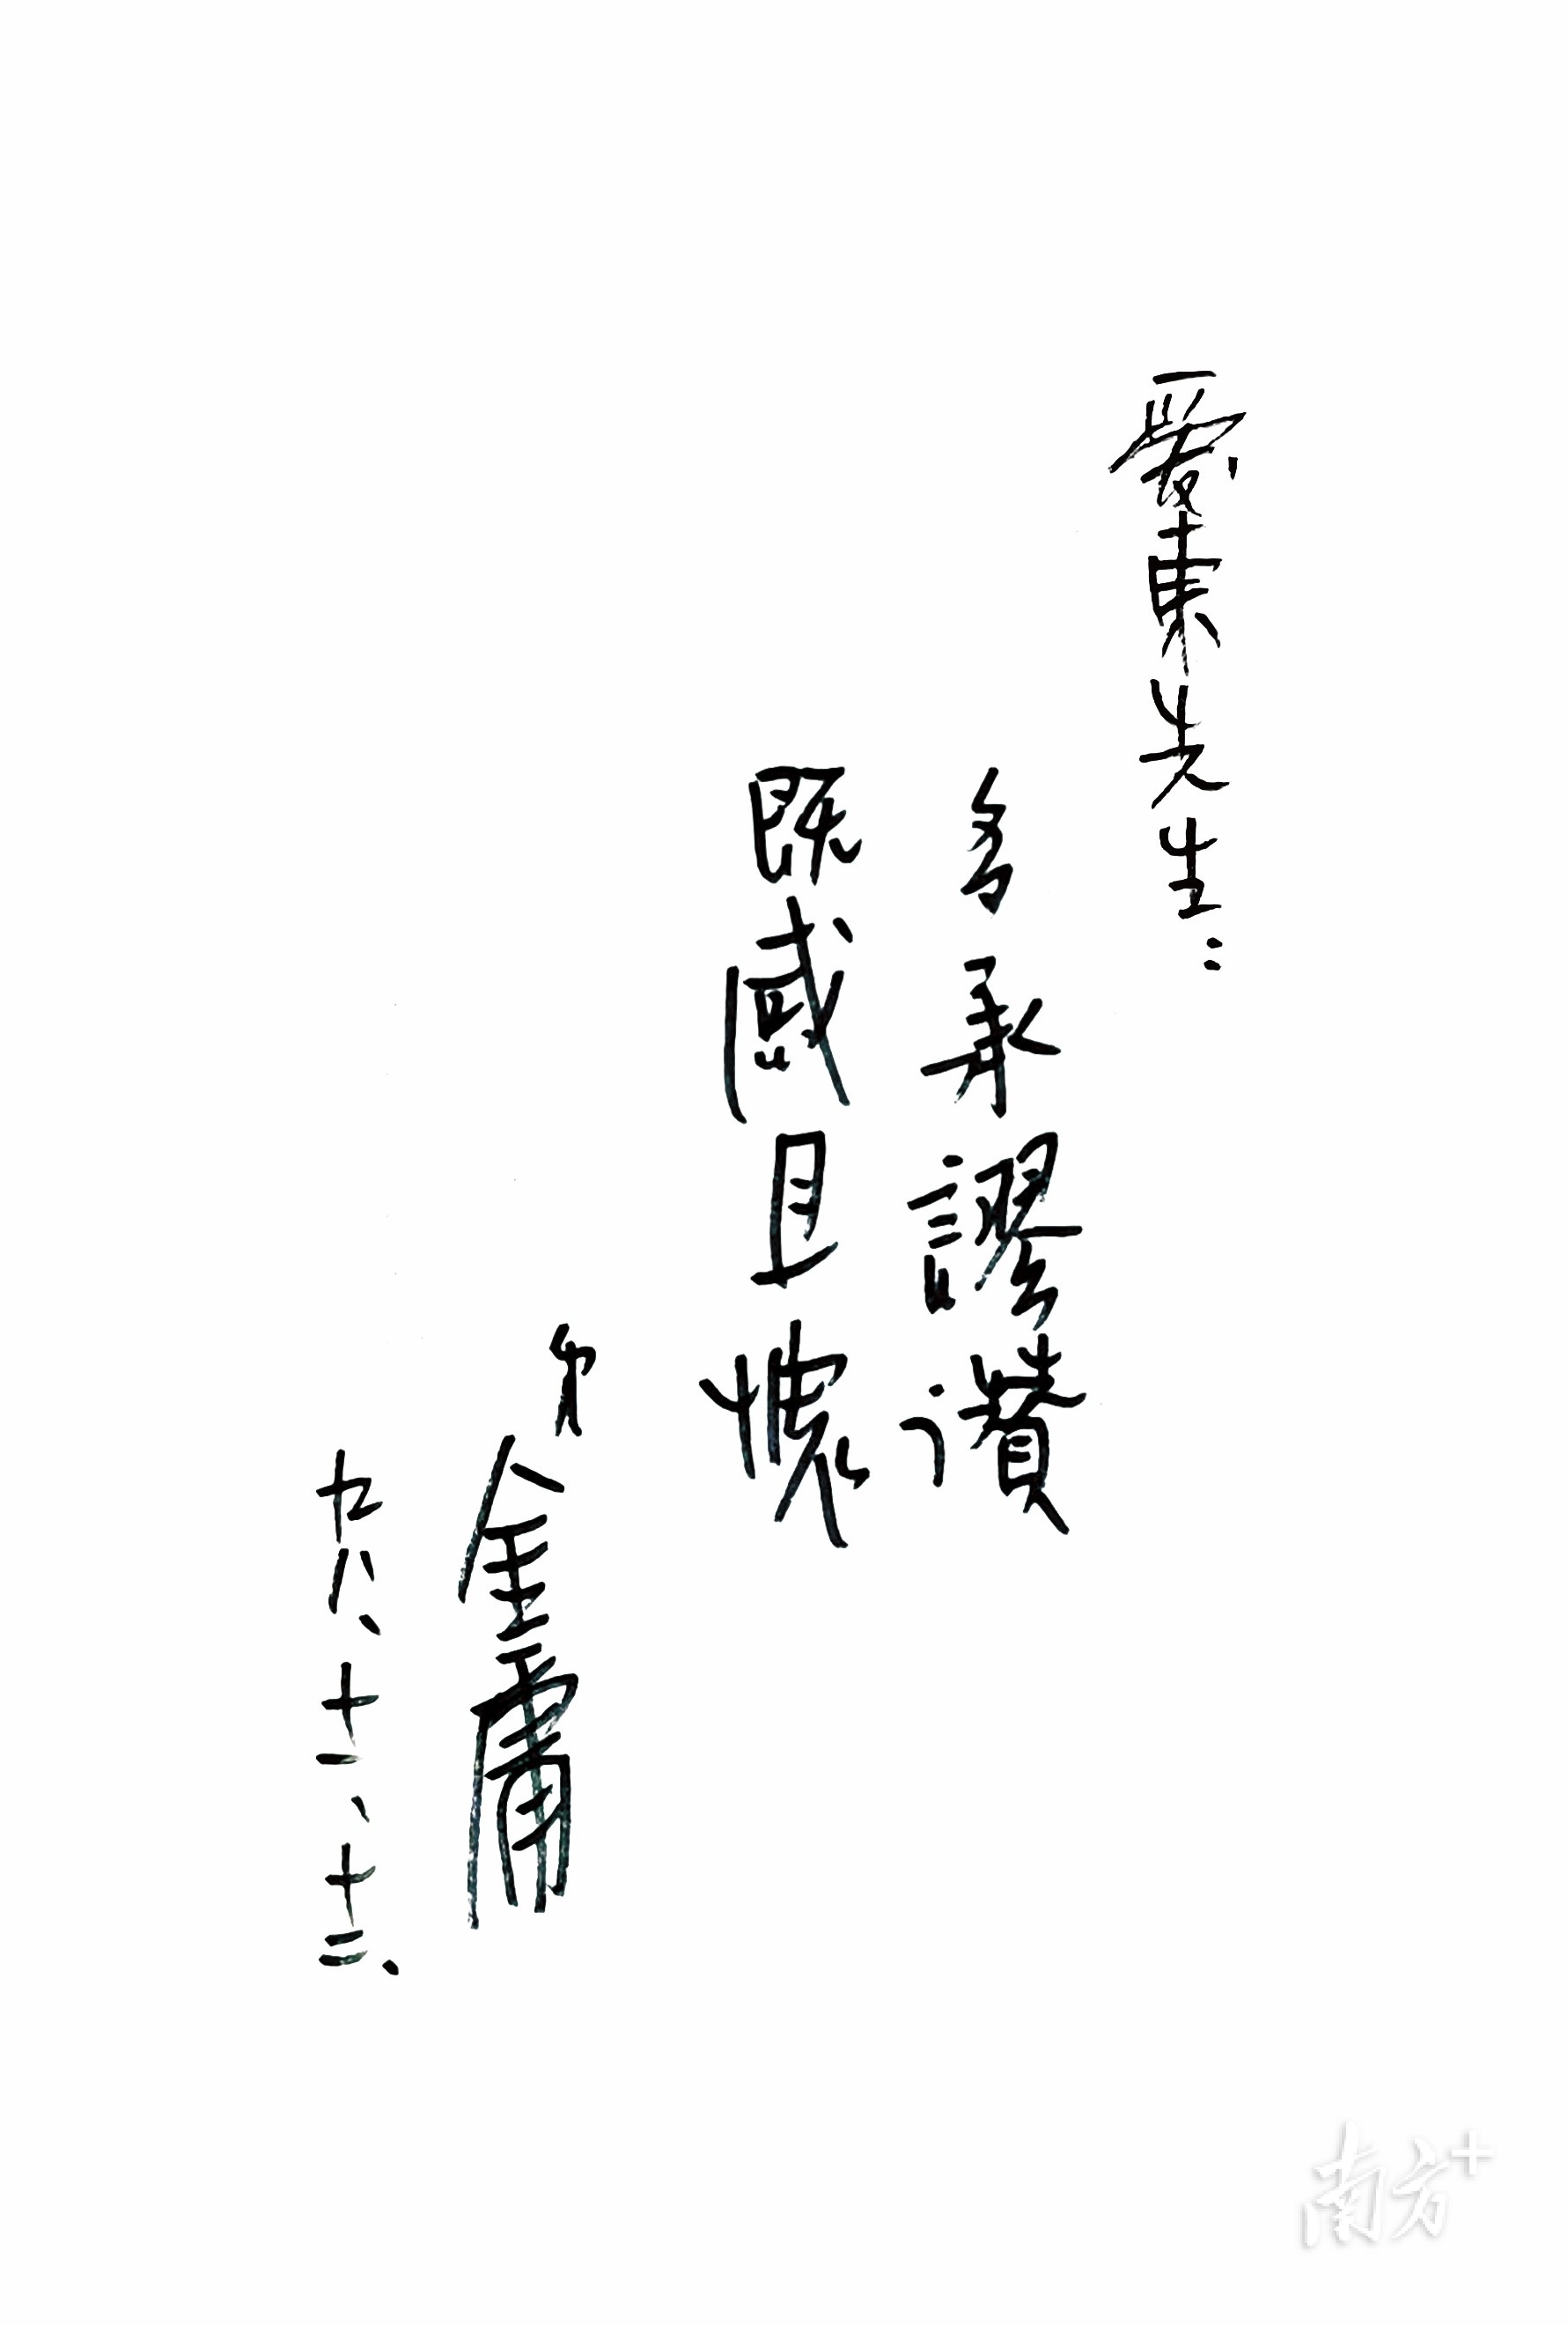 愛東先生：
多承謬讚
既感且愧
弟
金庸
九八、十一、十二、
南方+